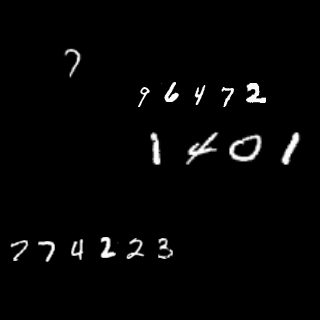 7
96472
1401
774223